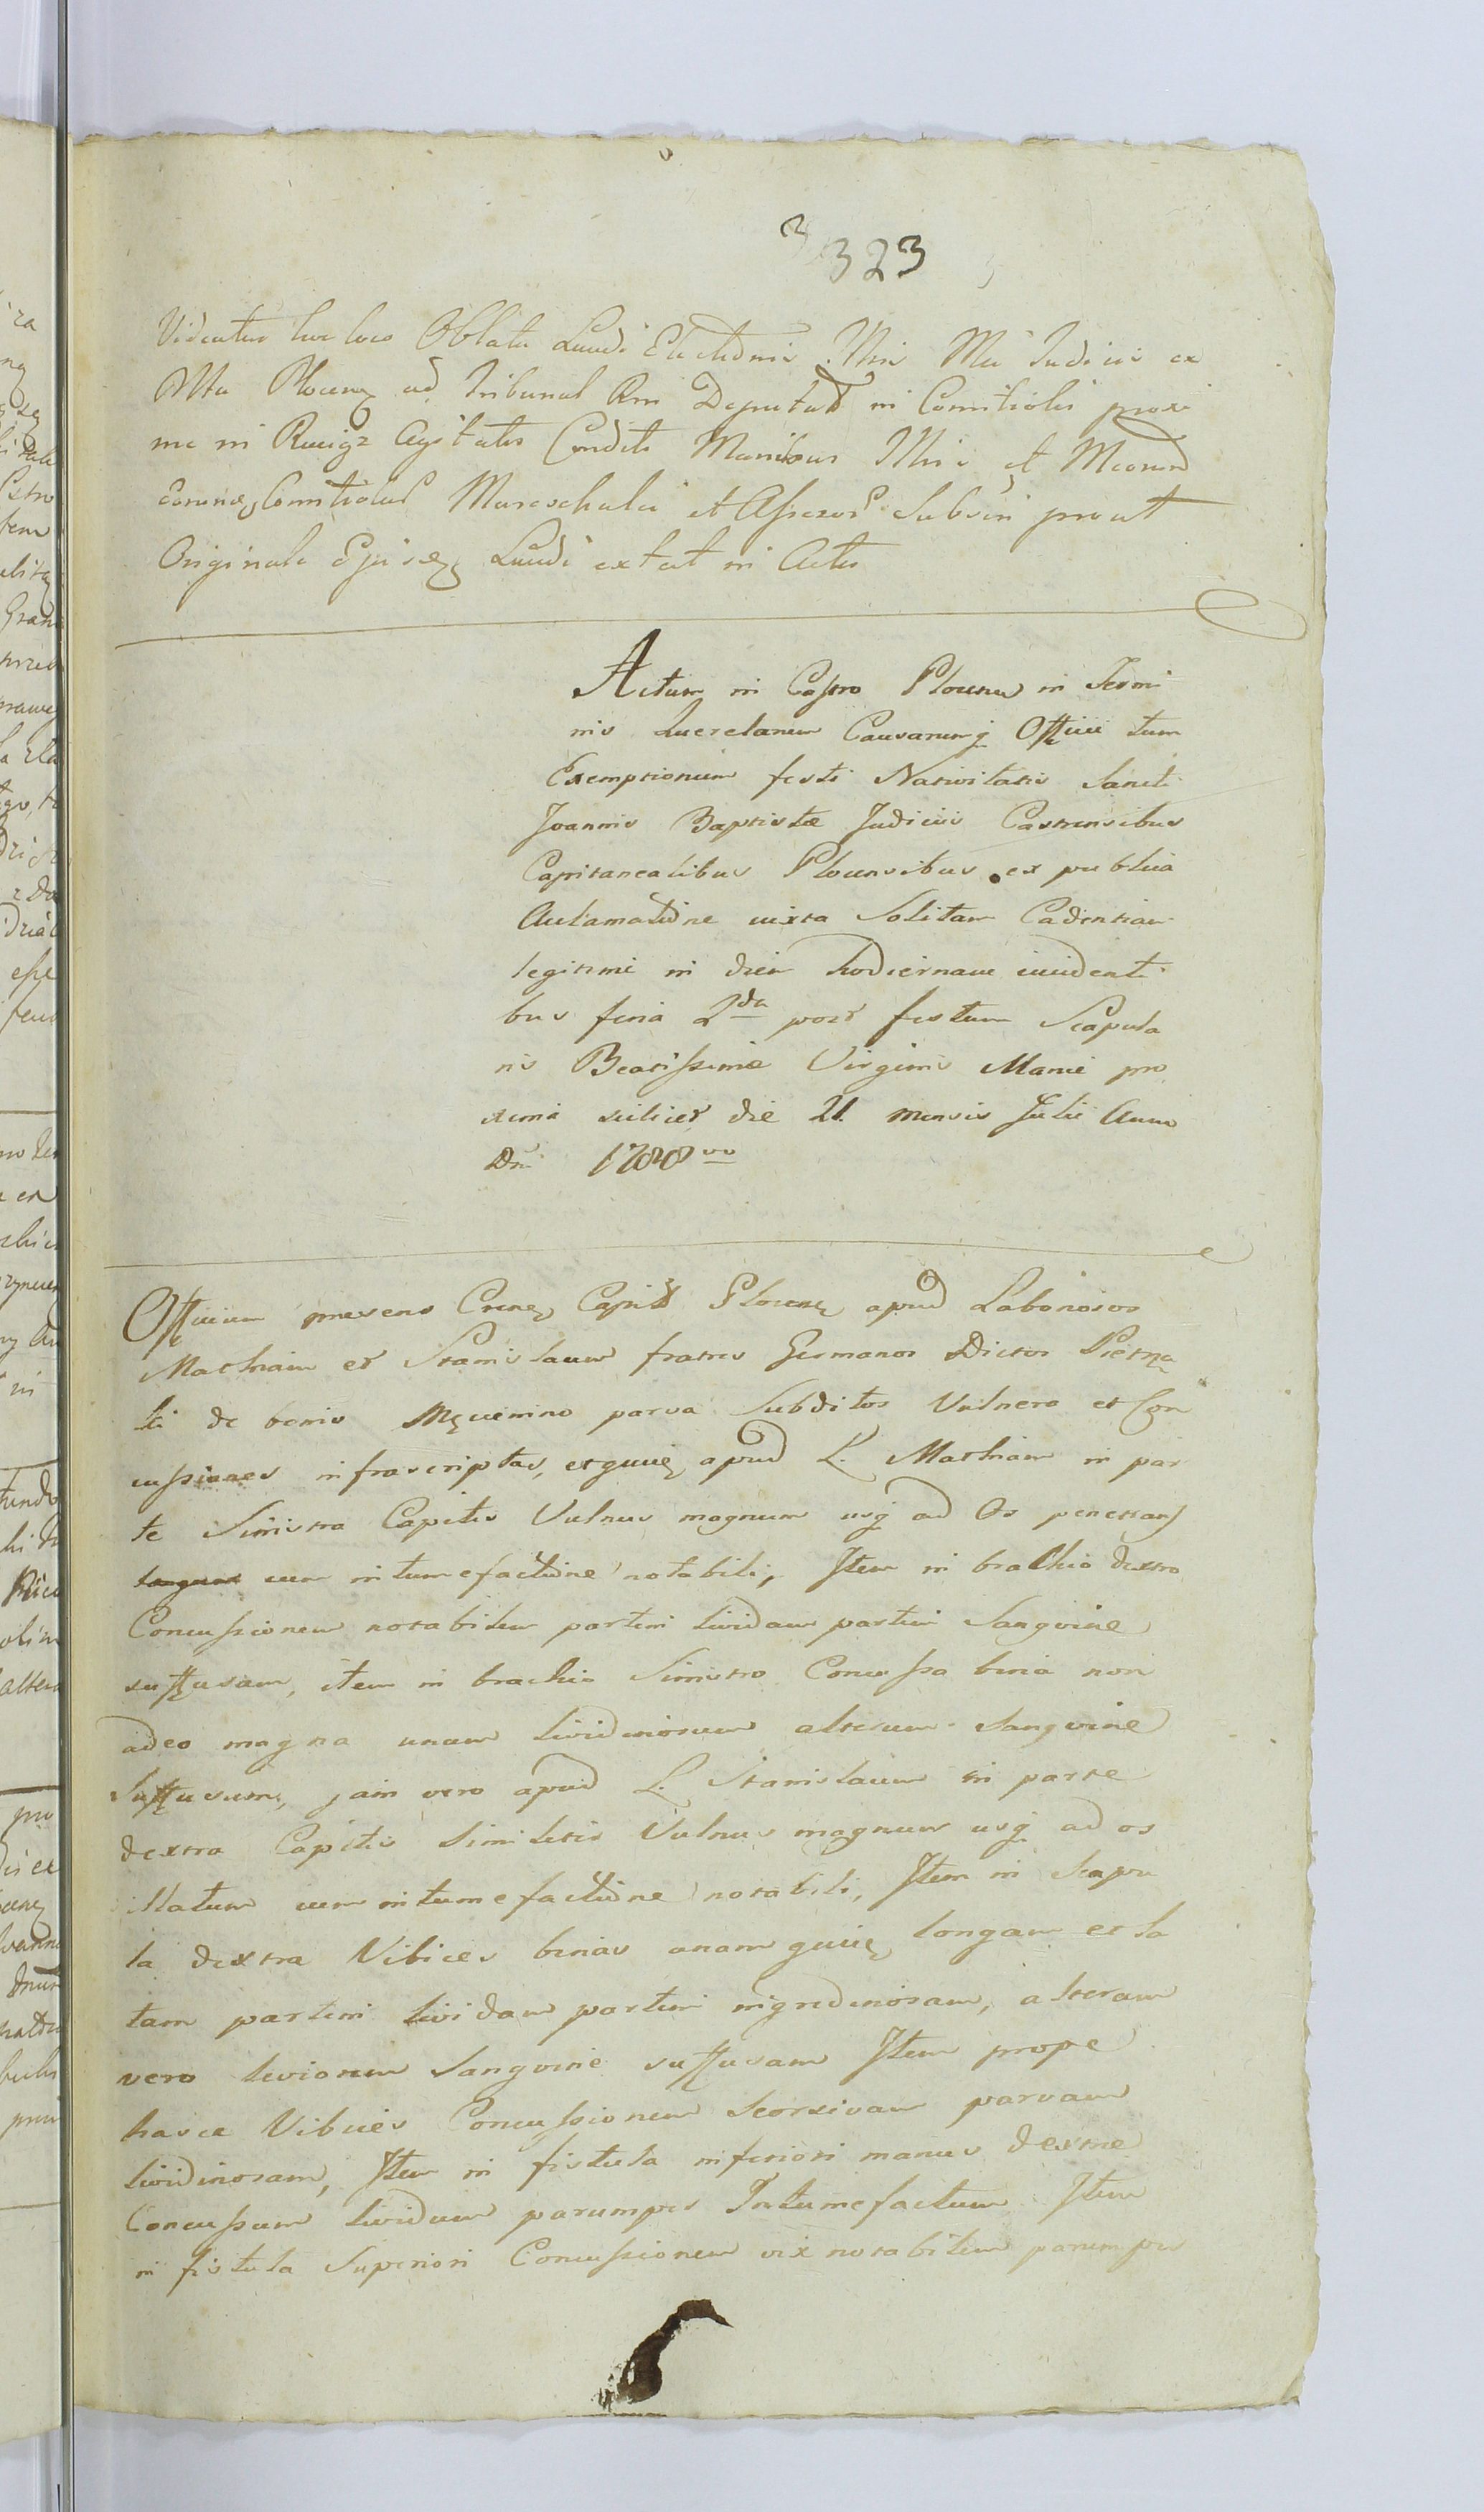 323
Videatur hic loco Oblata Laudi Electionis Illmi Mci Judicis ex
Pltu Plocens ad Tribunal Rni Deputat in Comitiolis proxi
me in Raciąz Agitatis Conditi Manibus Illmi et Mcorum
eorund Comitiolor Mareschalci et Assesor Subscri prout
Originale Ejusdem Laudi extat in Actis
Actum in Castro Plocen in Termi
nis Querelarum Causarumq Officii tum
Exemptionum festi Nativitatis Sancti
Joannis Baptistæ Judiciis Castrensibus
Capitanealibus Plocensibus ex publica
Acclamatione iuxta Solitam Cadentiam
legitime in diem hodiernam incidenti
bus feria 2da post festum Scapula
ris Beatissimæ Virginis Mariæ pro
xima scilicet die 21 mensis Julii Anno
Dni 1788vo
Officium præsens Crene Capitl Plocen apud Laboriosos
Mathiam et Stanislaum fratres Germanos Dictos Pietrza
ki de bonis Męcenino parva Subditos Vulnera et Con
cussiones infrascriptas, et quię apud L. Mathiam in par
te Sinistra Capitis Vulnus magnum usq ad Os penetrans
cum intumefactione notabili, Item in brachio dextro
Concussionem notabilem partim lividam partim Sangvine
suffusam, item in brachio Sinistro Concussa bina non
adeo magna unum lividinosum alterum Sangvine
Suffusum, jam vero apud L. Stanislaum in parte
dextra Capitis Simileris Vulnus magnum usq ad os
illatum cum intumefactione notabili, Item in Scapu
la dextra Vibices binas unam quię longam et la
tam partim lividam partim nigredinosam, alteram
vero leviorem Sangvine suffusam Item prope
hasce Vibices Concussionem Seorsivam parvam
lividinosam, Item in fistula inferiori manus dextræ
Concussum lividum parumper Intumefactum Item
in fistula Superiori Concussionem vix notabilem parumper